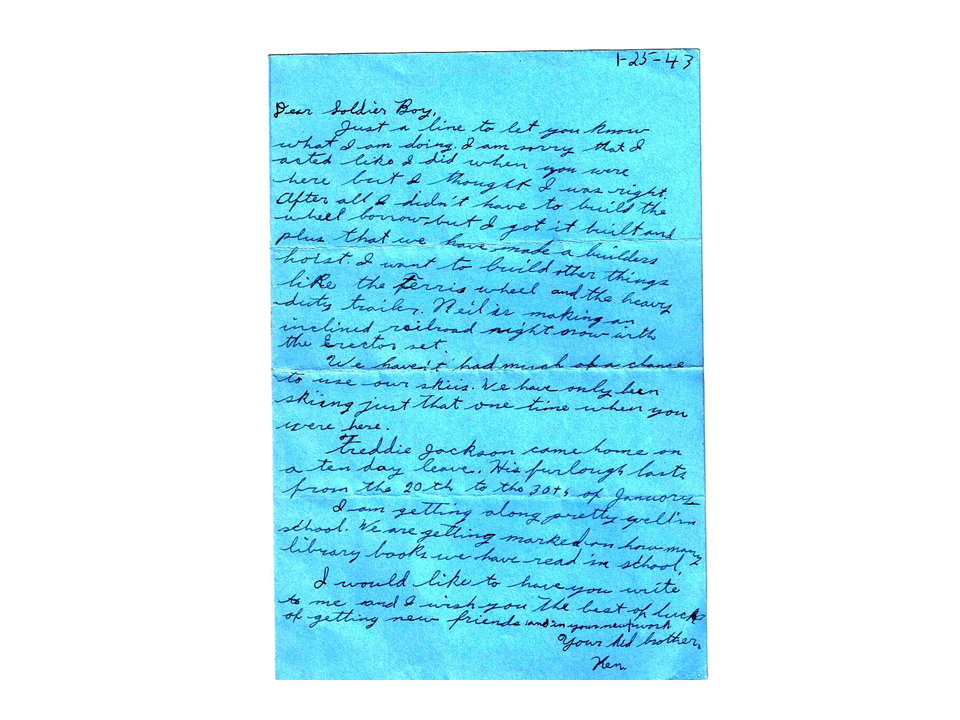 1-25-43
Dear Soldier Boy,
Just a line to let you know
what I am doing. I am sorry that I
acted like I did when you were
here but I thought I was right.
After all I didn't have to build the
wheel borrow but I got it built and
plus that we have made a builders
hoist. I want to build other things
like the Ferris wheel and the heavy
duty trailer. Neil is making an
inclined railroad right now with
the Erector set.
We haven't had much of a chance
to use our skiis. We have only been
skiing just that one time when you
were here.
Freddie Jackson came home on
a ten day leave. His furlough lasts
from the 20th to the 30th of January
I am getting along pretty well in
school. We are getting marked on how many
library books we have read in school.
I would like to have you write
to me and I wish you the best of luck
of getting new friends and in your new work
Your kid brother,
Ken.